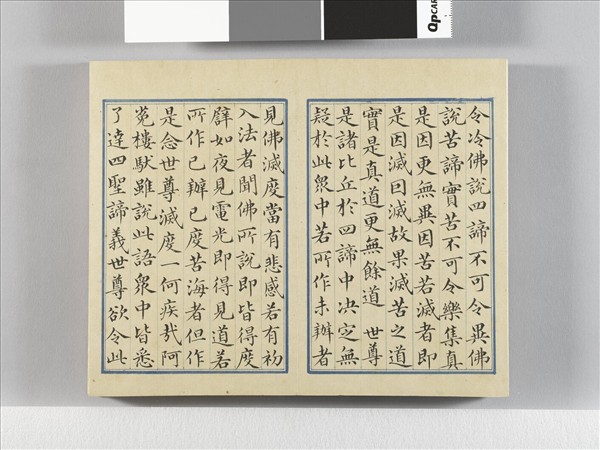 令冷佛說四諦不可令異佛
說苦諦實苦不可令樂集真
是因更無異因苦若滅者即
是因滅因滅故果滅苦之道
實是真道更無餘道　世尊
是諸比丘於四諦中決定無
疑於此眾中若所作未辦者
見佛滅度當有悲感若有初
入法者聞佛所說即皆得度
譬如夜見電光即得見道若
所作已辦已度苦海者但作
是念世尊滅度一何疾哉阿
㝹樓馱雖說此語眾中皆悉
了達四聖諦義世尊欲令此
QpCAR